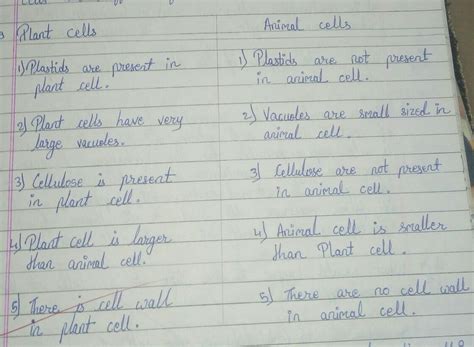 Plant cells
1) Plastids are present in
plant cell.
2) Plant cells have very
large vacuoles.
3) Cellulose is present
in plant cell.
4) Plant cell is larger
than animal cell.
5) There is cell wall
in plant cell.
Animal cells
1) Plastids are not present
in animal cell.
2) Vacuoles are small sized in
animal cell.
3) Cellulose are not present
in animal cell.
4) Animal cell is smaller
than Plant cell.
5) There are no cell wall
in animal cell.